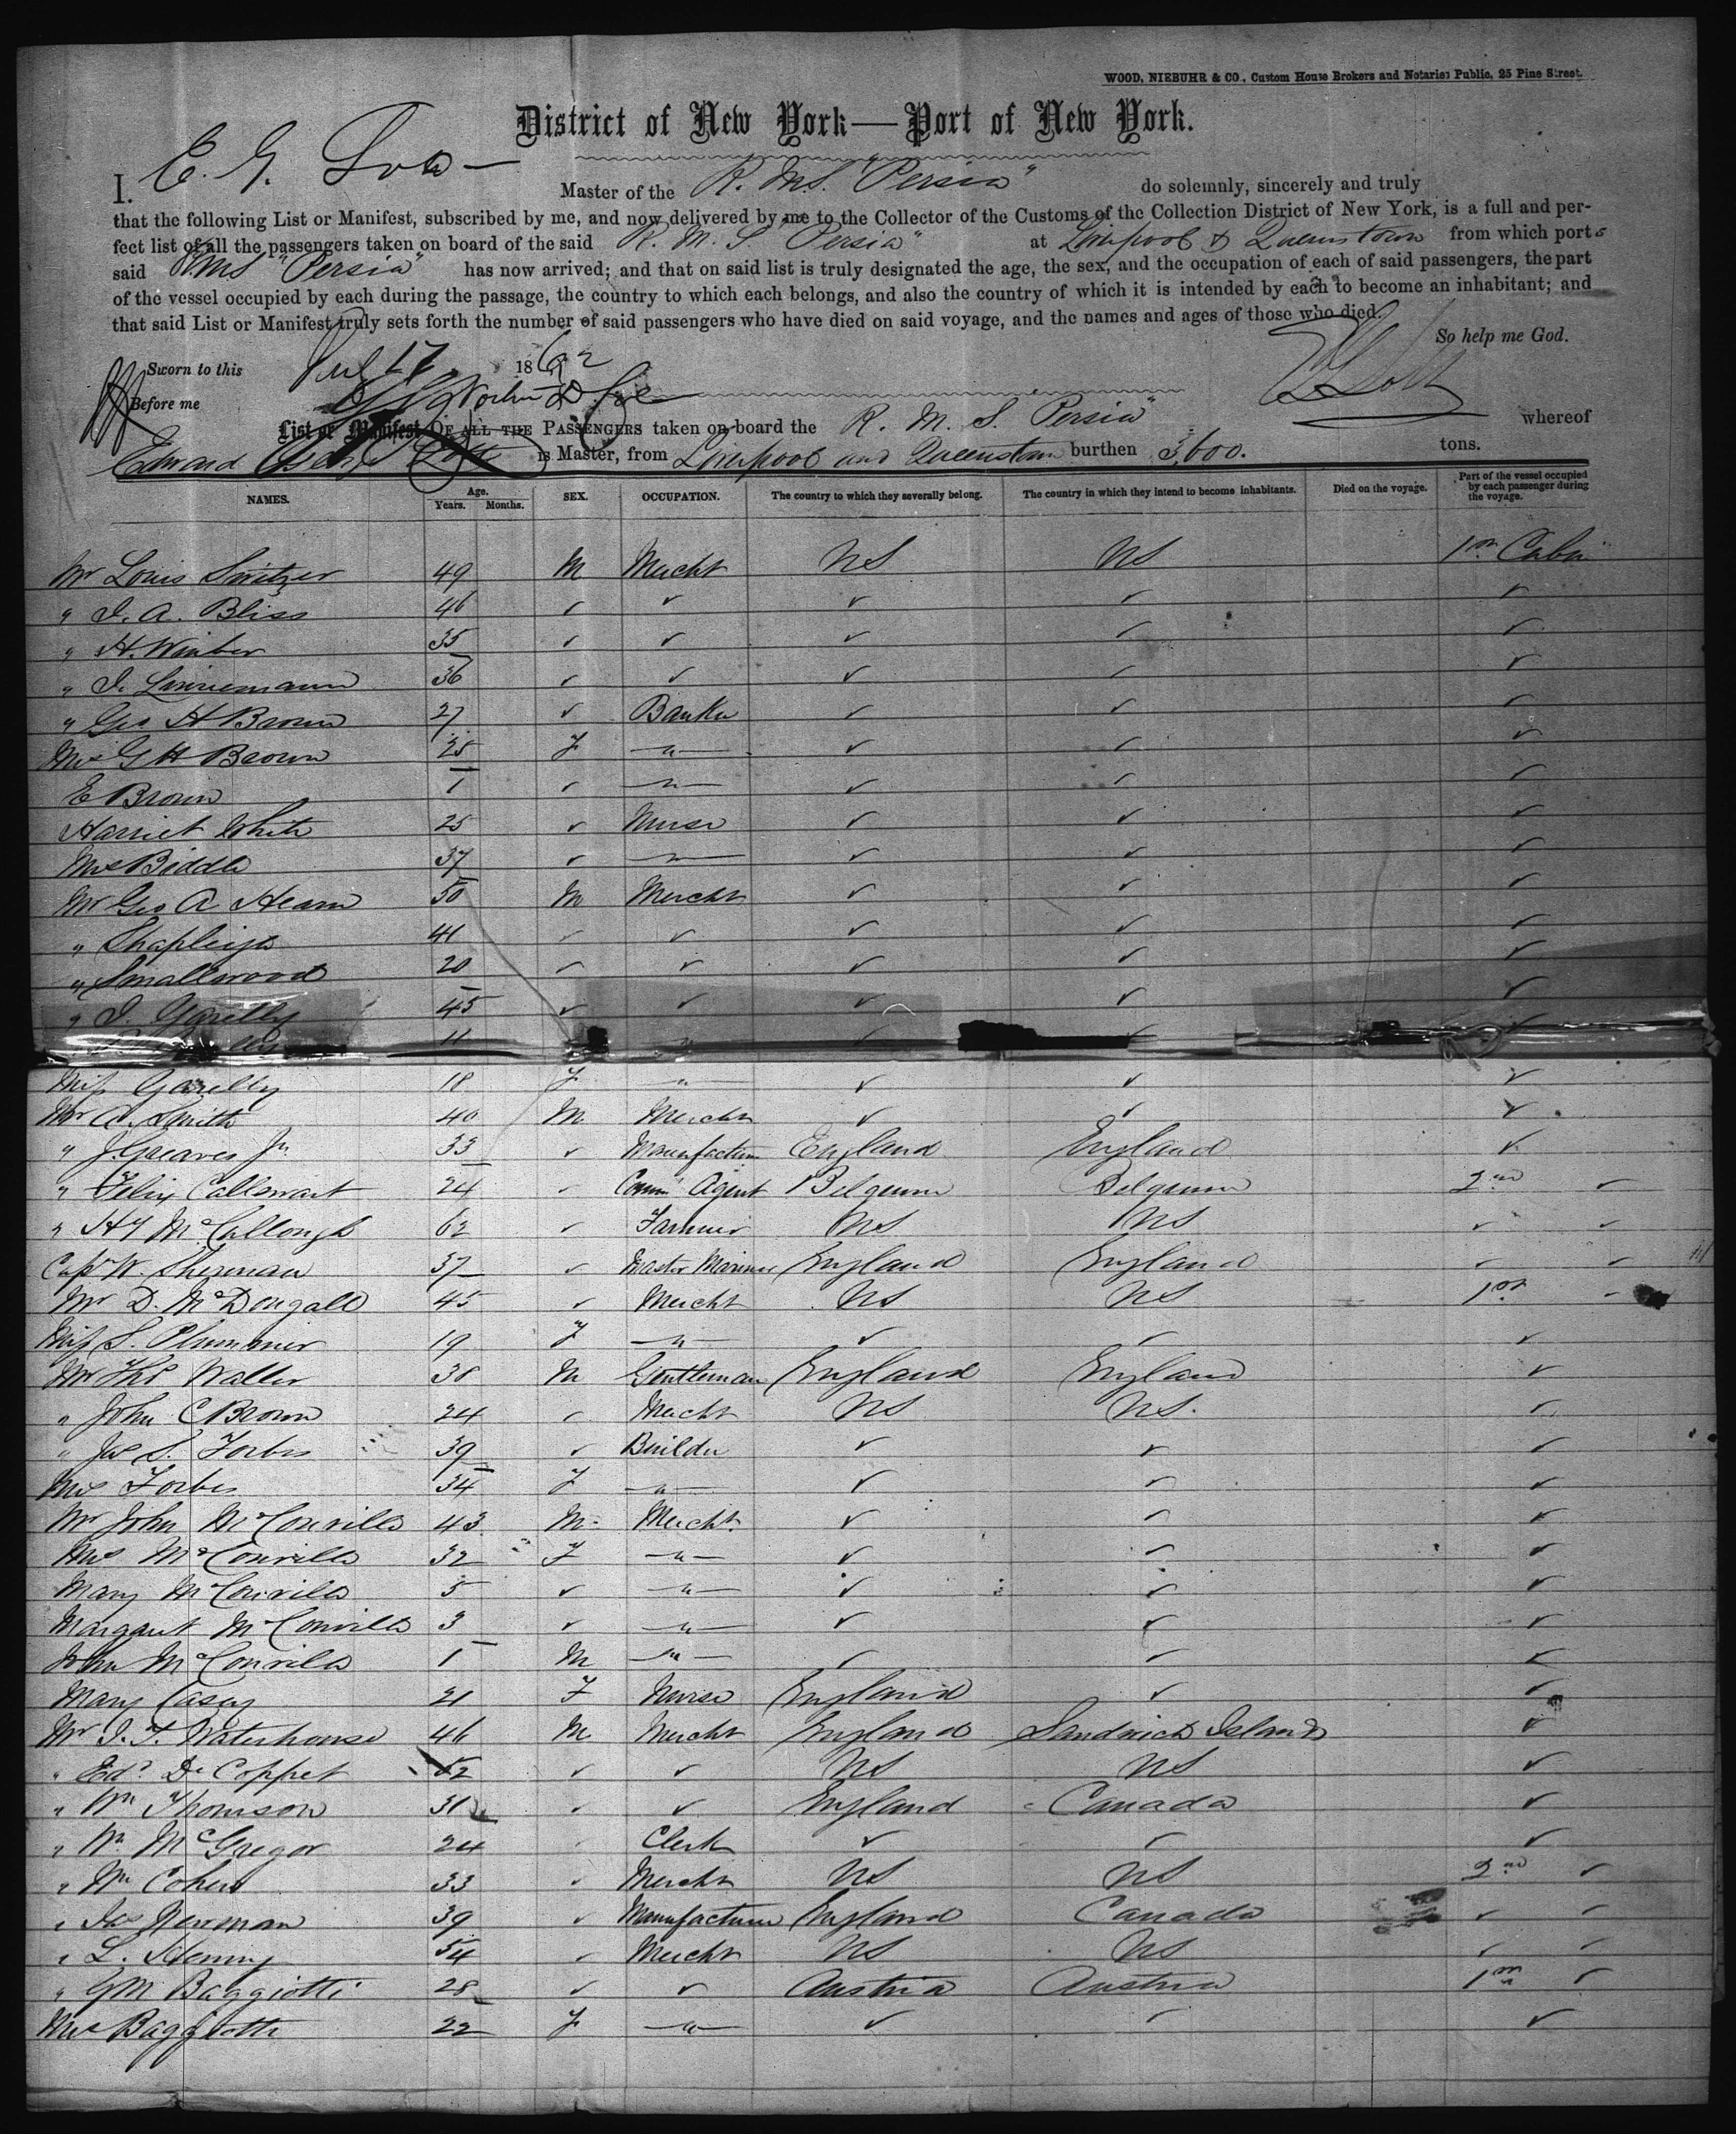 WOOD, NIEBUHR & CO., Custom House Brokers and Notaries Public, 25 Pine Street.
District of New York—Port of New York.
I, E. G.
Master of the R. M. S. "Persia" do solemnly, sincerely and truly
that the following List or Manifest, subscribed by me, and now delivered by me to the Collector of the Customs of the Collection District of New York, is a full and per-
fect list of all the passengers taken on board of the said R. M. S. "Persia" at Liverpool & Queenstown from which ports
said RMS "Persia" has now arrived; and that on said list is truly designated the age, the sex, and the occupation of each of said passengers, the part
of the vessel occupied by each during the passage, the country to which each belongs, and also the country of which it is intended by each to become an inhabitant; and
that said List or Manifest truly sets forth the number of said passengers who have died on said voyage, and the names and ages of those who died.
So help me God.
Sworn to this 17 1862
Before me
List or Manifest OF ALL THE PASSENGERS taken on board the R. M. S. Persia" whereof
Edward is Master, from Liverpool and Queenstown burthen 3,600. tons.
NAMES. Age. Years. Months. SEX. OCCUPATION. The country to which they severally belong. The country in which they intend to become inhabitants. Died on the voyage. Part of the vessel occupied by each passenger during the voyage.
Mr Louis Switzer 49 M Mercht US US 1st Cabin
" I. A. Bliss 46 ✓ ✓ ✓ ✓ ✓
" H. Winter 35 ✓ ✓ ✓ ✓ ✓
" I. Linnemann 36 ✓ ✓ ✓ ✓ ✓
" Geo H Brown 27 ✓ Banker ✓ ✓ ✓
Mrs G H Brown 25 F —"— ✓ ✓ ✓
E Brown 1 ✓ —"— ✓ ✓ ✓
Harriet White 25 ✓ Nurse ✓ ✓ ✓
Mrs Biddle 37 ✓ —"— ✓ ✓ ✓
Mr Geo A Hearn 50 M Mercht ✓ ✓ ✓
" Shapleigh 41 ✓ ✓ ✓ ✓ ✓
" Smallwood 20 ✓ ✓ ✓ ✓ ✓
" I. Garelly 45 ✓ ✓ ✓ ✓ ✓
11 " ✓ ✓ ✓
Miss Garelly 18 F —"— ✓ ✓ ✓
Mr A. Smith 40 M Mercht ✓ ✓ ✓
" J. Greaves Jr. 33 ✓ Manufacturer England England ✓
" Felix 24 ✓ Comm Agent Belgium Belgium 2nd ✓
" Hy McCullough 62 ✓ Farmer US US ✓ ✓
Capt W. Sherman 37 ✓ Master Mariner England England ✓ ✓
Mr D. McDougall 45 ✓ Mercht US US 1st
Miss S. Plummer 19 F —"— ✓ ✓ ✓
Mr Thos Waller 38 M Gentleman England England ✓
" John C Brown 24 ✓ Mercht US US. ✓
" Jas S. Forbes 39 ✓ Builder ✓ ✓ ✓
Mrs Forbes 34 F —"— ✓ ✓ ✓
Mr John McConville 43 M. Mercht. ✓ ✓ ✓
Mrs McConville 32 F —"— ✓ ✓ ✓
Mary McConville 5 ✓ —"— ✓ ✓ ✓
Margaret McConville 3 ✓ —"— ✓ ✓ ✓
John McConville 1 M —"— ✓ ✓ ✓
Mary Casey 21 F Nurse England ✓ ✓
Mr I. T. Waterhouse 46 M Mercht England Sandwich Islands ✓
" Edd. De Coppet 52 ✓ ✓ US US ✓
" Wm Thomson 31 ✓ ✓ England Canada ✓
" Wm McGregor 24 ✓ Clerk ✓ ✓ ✓
" Wm Cohen 33 ✓ Mercht US US 2nd ✓
" Jas Newman 39 ✓ Manufacturer England Canada ✓ ✓
" L. Henry 54 ✓ Mercht US US ✓ ✓
" GM Baggiotti 28 ✓ ✓ Austria Austria 1st ✓
Mrs Baggiotti 22 F —"— ✓ ✓ ✓